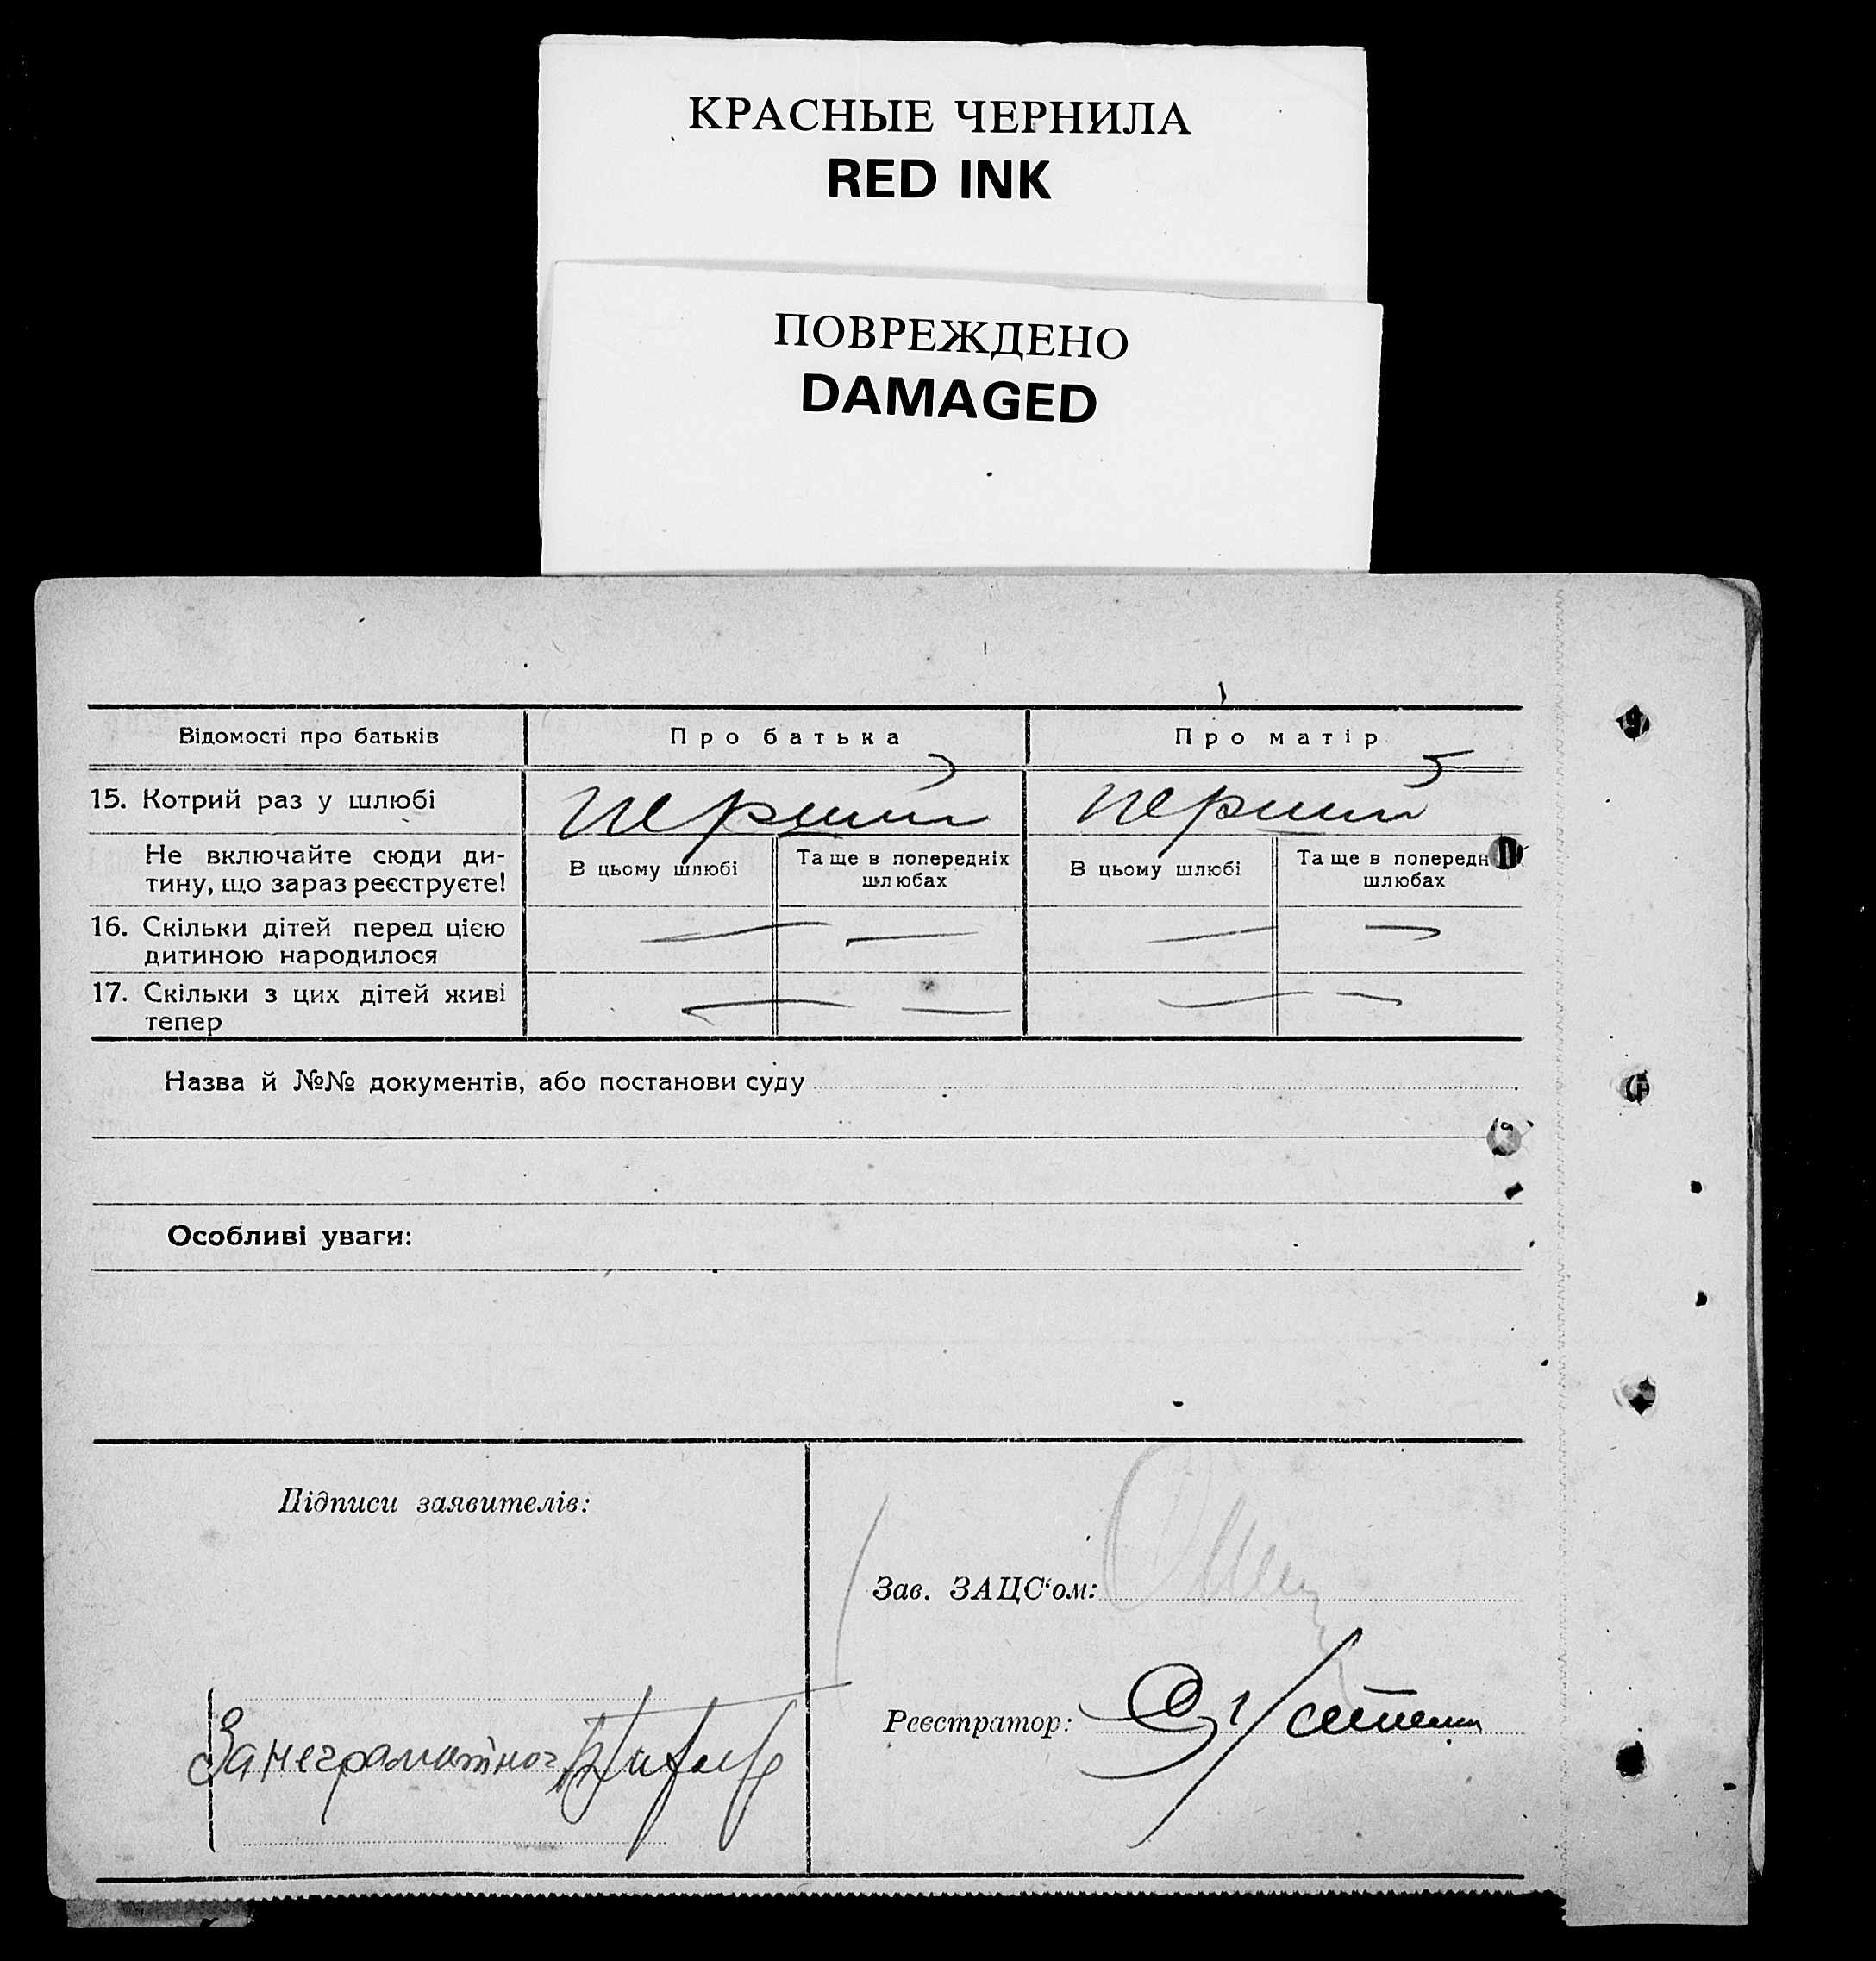 КРАСНЫЕ ЧЕРНИЛА
RED INK
ПОВРЕЖДЕНО
DAMAGED
Відомості про батьків
Про батька
Про матір
15. Котрий раз у шлюбі
перший
перший
Не включайте сюди ди-
тину, що зараз реєструєте!
В цьому шлюбі
Та ще в попередніх
шлюбах
В цьому шлюбі
Та ще в попередн
шлюбах
16. Скільки дітей перед цією
дитиною народилося
17. Скільки з цих дітей живі
тепер
Назва й №№ документів, або постанови суду
Особливі уваги:
Підписи заявителів:
За неграмотног
Зав. ЗАЦС‘ом:
Реєстратор: